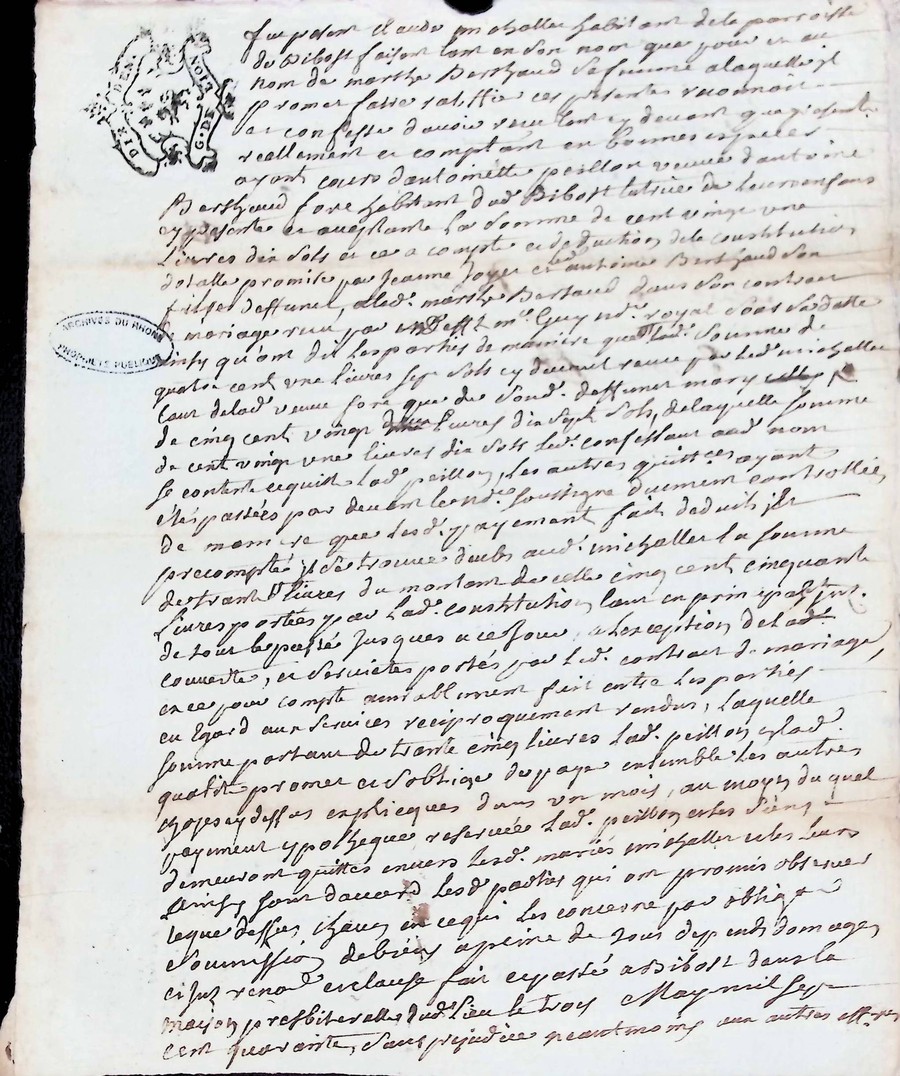 DIX DEN
G. DE LION
ARCHIVES DU RHONE
PROPRIETE PUBLIQUE
fut present Claude michallet habitant de la parroisse
de Bibost faisant tant en son nom que pour et au
nom de marthe Berthaud sa femme a laquelle il
promet faire ratiffie ces presentes reconnoit
et confesse davoir receu tant cy devant que presentem.
reellement et comptant en bonnes especes
ayant cours dantoinette peillon veuve dantoine
Berthaud fore habitant dud. Bibost tutrice de leurs enfans
cy presente et acceptante la somme de cent vingt une
livres dix sols et ce a compte et deduction de la constitution
dotalle promise par Jeanne Joyet et antoine Berthaud son
fils deffunct, a lad. marthe Bertaud dans son contract
de mariage receu par deff.t m.e Guy no.re royal sous sa datte
ainsy qu'ont dit les parties de maniere que lad. somme de
quatre cent une livres sept sols cy devant receue par led. michallet
tant de lad. veuve fore que de sond. deffunct mary
de cinq cent vingt livres dix sept sols, de laquelle somme
de cent vingt une livres dix sols led. confessant aud. nom
se contente et quitte lad. peillon, les autres quitt.ces ayant
étés passées par devant le no.re soussigné duement controllées
de maniere que lesd. payement fait deduit et
precompté il se trouve deubs aud. michallet la somme
de trante livres du montant de celle cinq cent cinquante
livres portées par lad. constitution tant en principal
de tout le passé jusques a ce jour, a lexception de lad.
couverte, et serviettes portés par led. contract de mariage,
et ce pour compte amiablement fait entre les parties
eu Egard aux services reciproquement rendus, laquelle
somme portant de trante cinq livres lad. peillon en lad.
qualité promet et soblige de payer ensemble les autres
choses cy dessus explicquées dans un mois, au moyen du quel
payement ypotheque reservée lad. peillon et les siens
demeuront quittes envers lesd. mariés michallet et les leurs
ainsy sont daccord lesd. parties qui ont promis observer
ce que dessus chacun en ce qui les concerne par oblig.on
soumission de biens a peine de tous depends domages
et int. renon. et clause fait et passé a Bibost dans la
maison presbiteralle dud. lieu le trois May mil sept
cent quarante, sans prejudice neantmoins aux autres